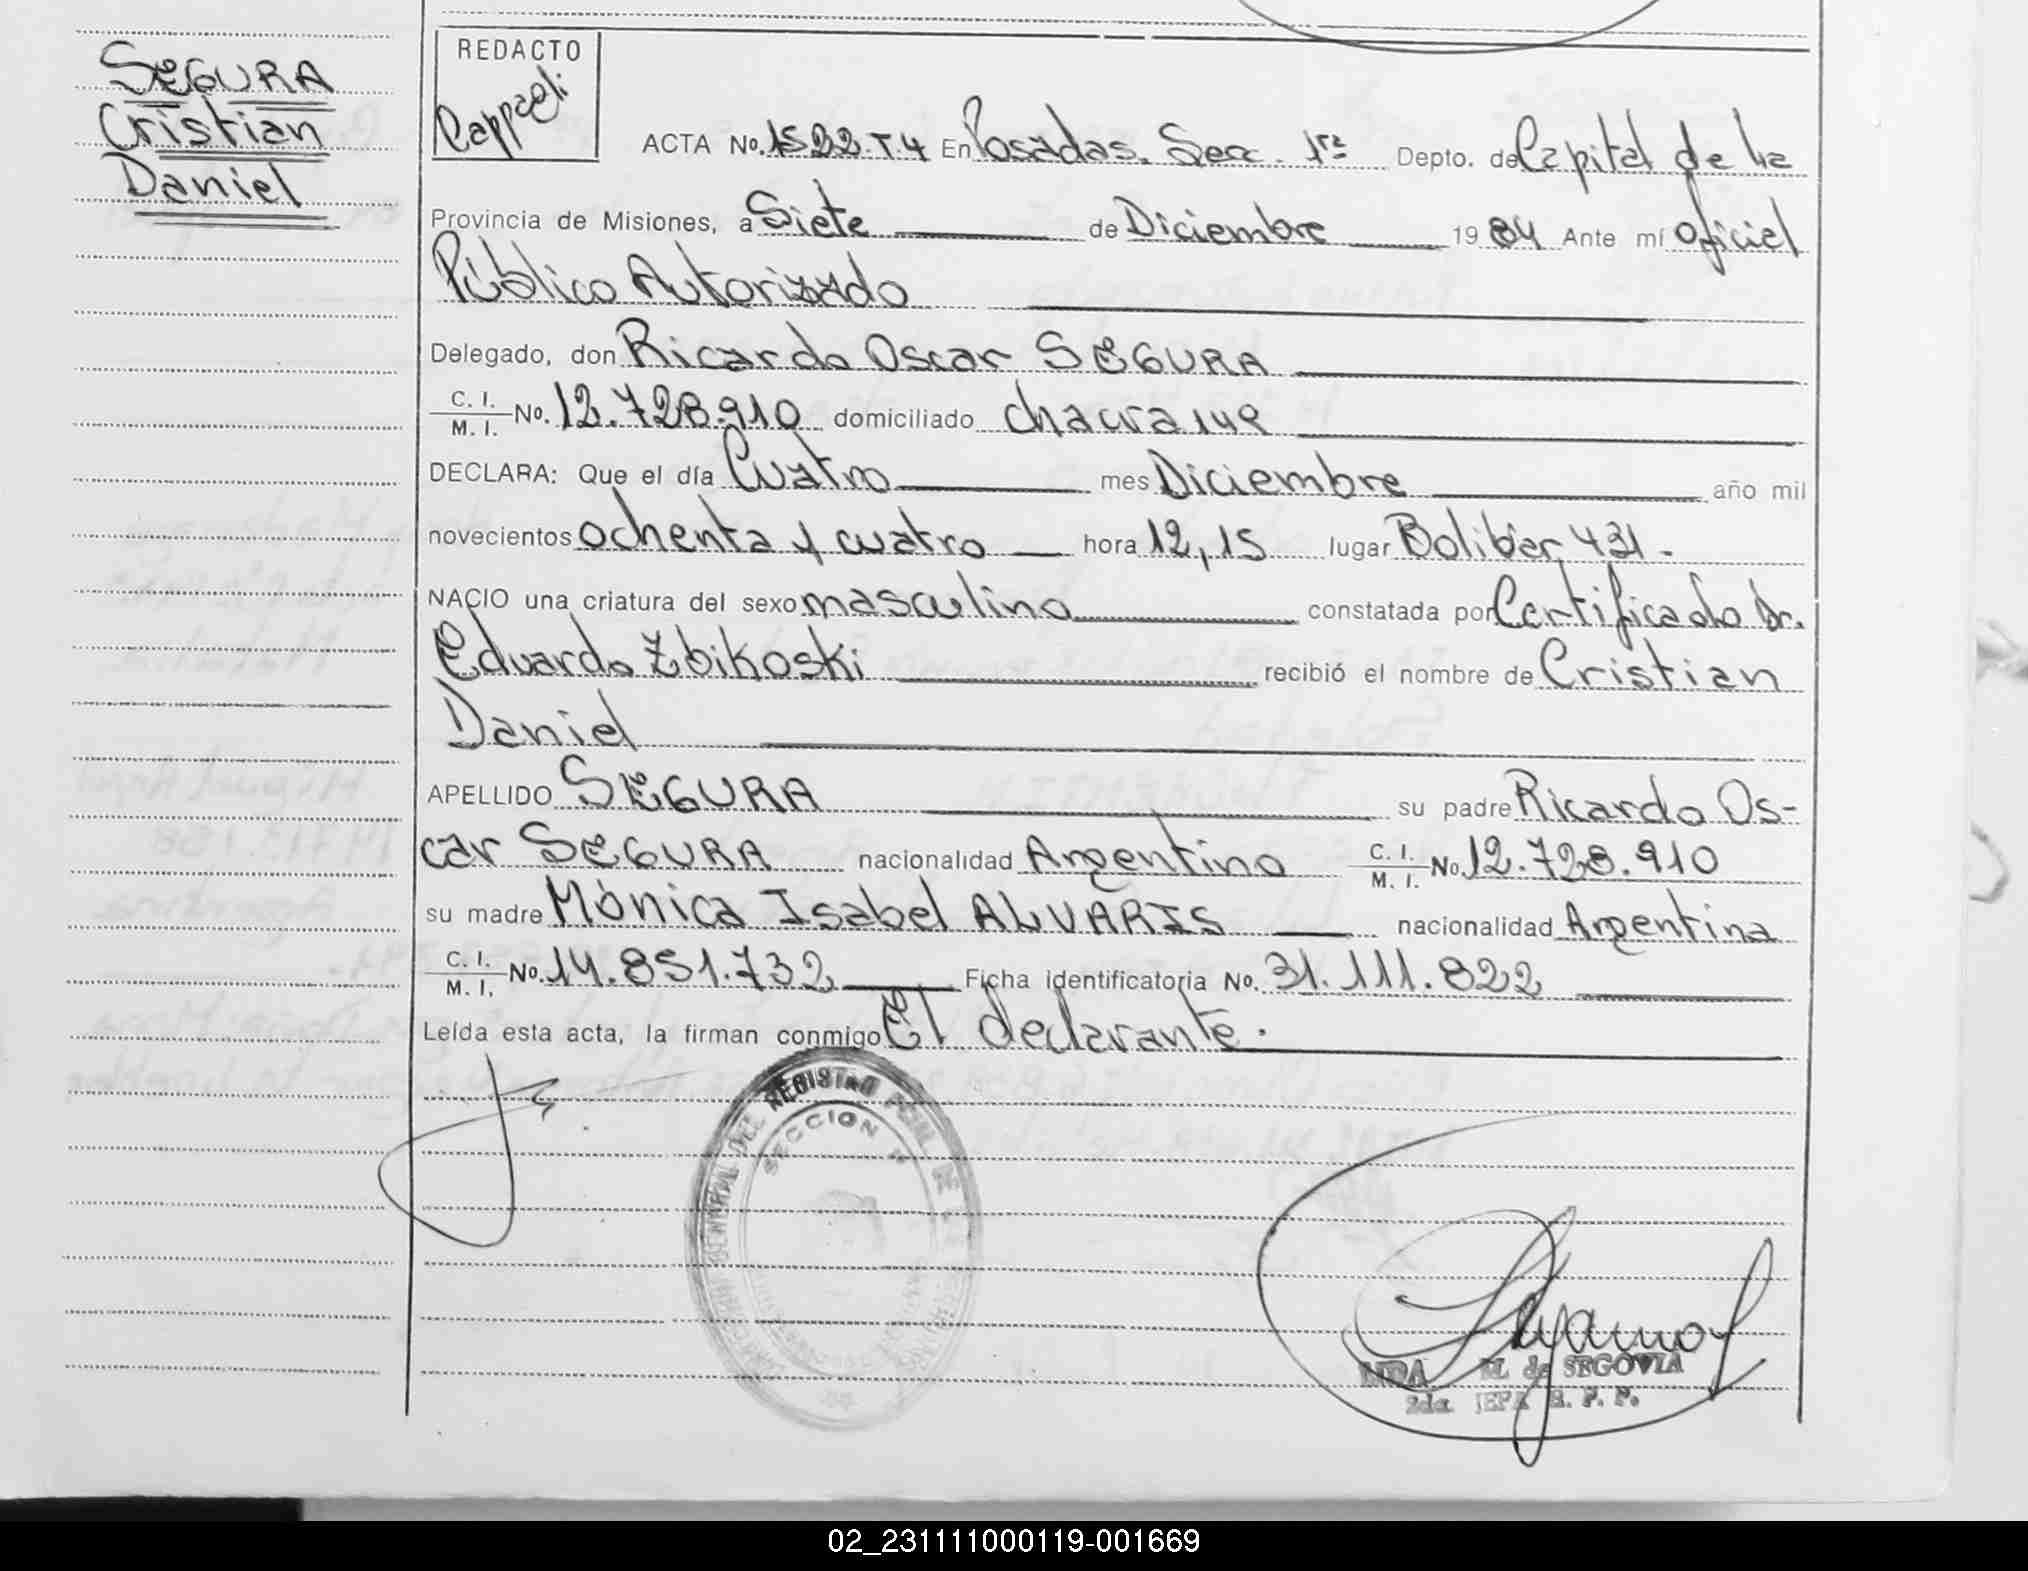 SEGURA
Cristian
Daniel
REDACTO
ACTA No. 1522-T4 En Posadas. Secc. 1ra Depto. de Capital de la
Provincia de Misiones, a Siete de Diciembre 1984 Ante mí Oficial
Público Autorizado
Delegado, don Ricardo Oscar SEGURA
C. I.
M. I. No. 12.728.910 domiciliado chacra 149
DECLARA: Que el día Cuatro mes Diciembre año mil
novecientos ochenta y cuatro hora 12,15 lugar Bolibar 431.
NACIO una criatura del sexo masculino constatada por Certificado Dr.
Eduardo Zbikoski recibió el nombre de Cristian
Daniel
APELLIDO SEGURA su padre Ricardo Os-
car SEGURA nacionalidad Argentino C. I.
M. I. No. 12.728.910
su madre Mónica Isabel ALVARIS nacionalidad Argentina
C. I.
M. I. No. 14.851.732 Ficha identificatoria No. 31.111.822
Leída esta acta, la firman conmigo El declarante.
GENERAL DEL REGISTRO
SECCION
EL de SEGOVIA
2da. JEFA R. P. P.
02_231111000119-001669